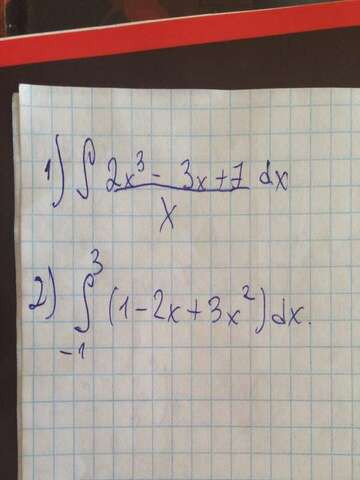 1) ∫ (2x³ - 3x + 7)/x dx
2) ∫₋₁³ (1 - 2x + 3x²) dx.